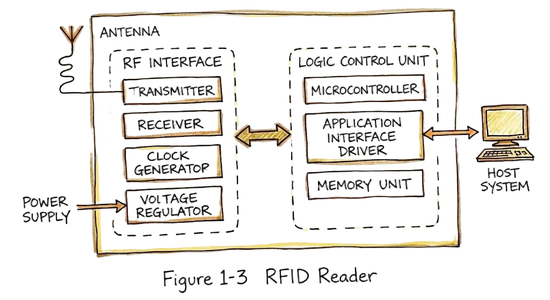 ANTENNA
RF INTERFACE
TRANSMITTER
RECEIVER
CLOCK
GENERATOP
VOLTAGE
REGULATOR
POWER
SUPPLY
LOGIC CONTROL UNIT
MICROCONTROLLER
APPLICATION
INTERFACE
DRIVER
MEMORY UNIT
HOST
SYSTEM
Figure 1-3 RFID Reader